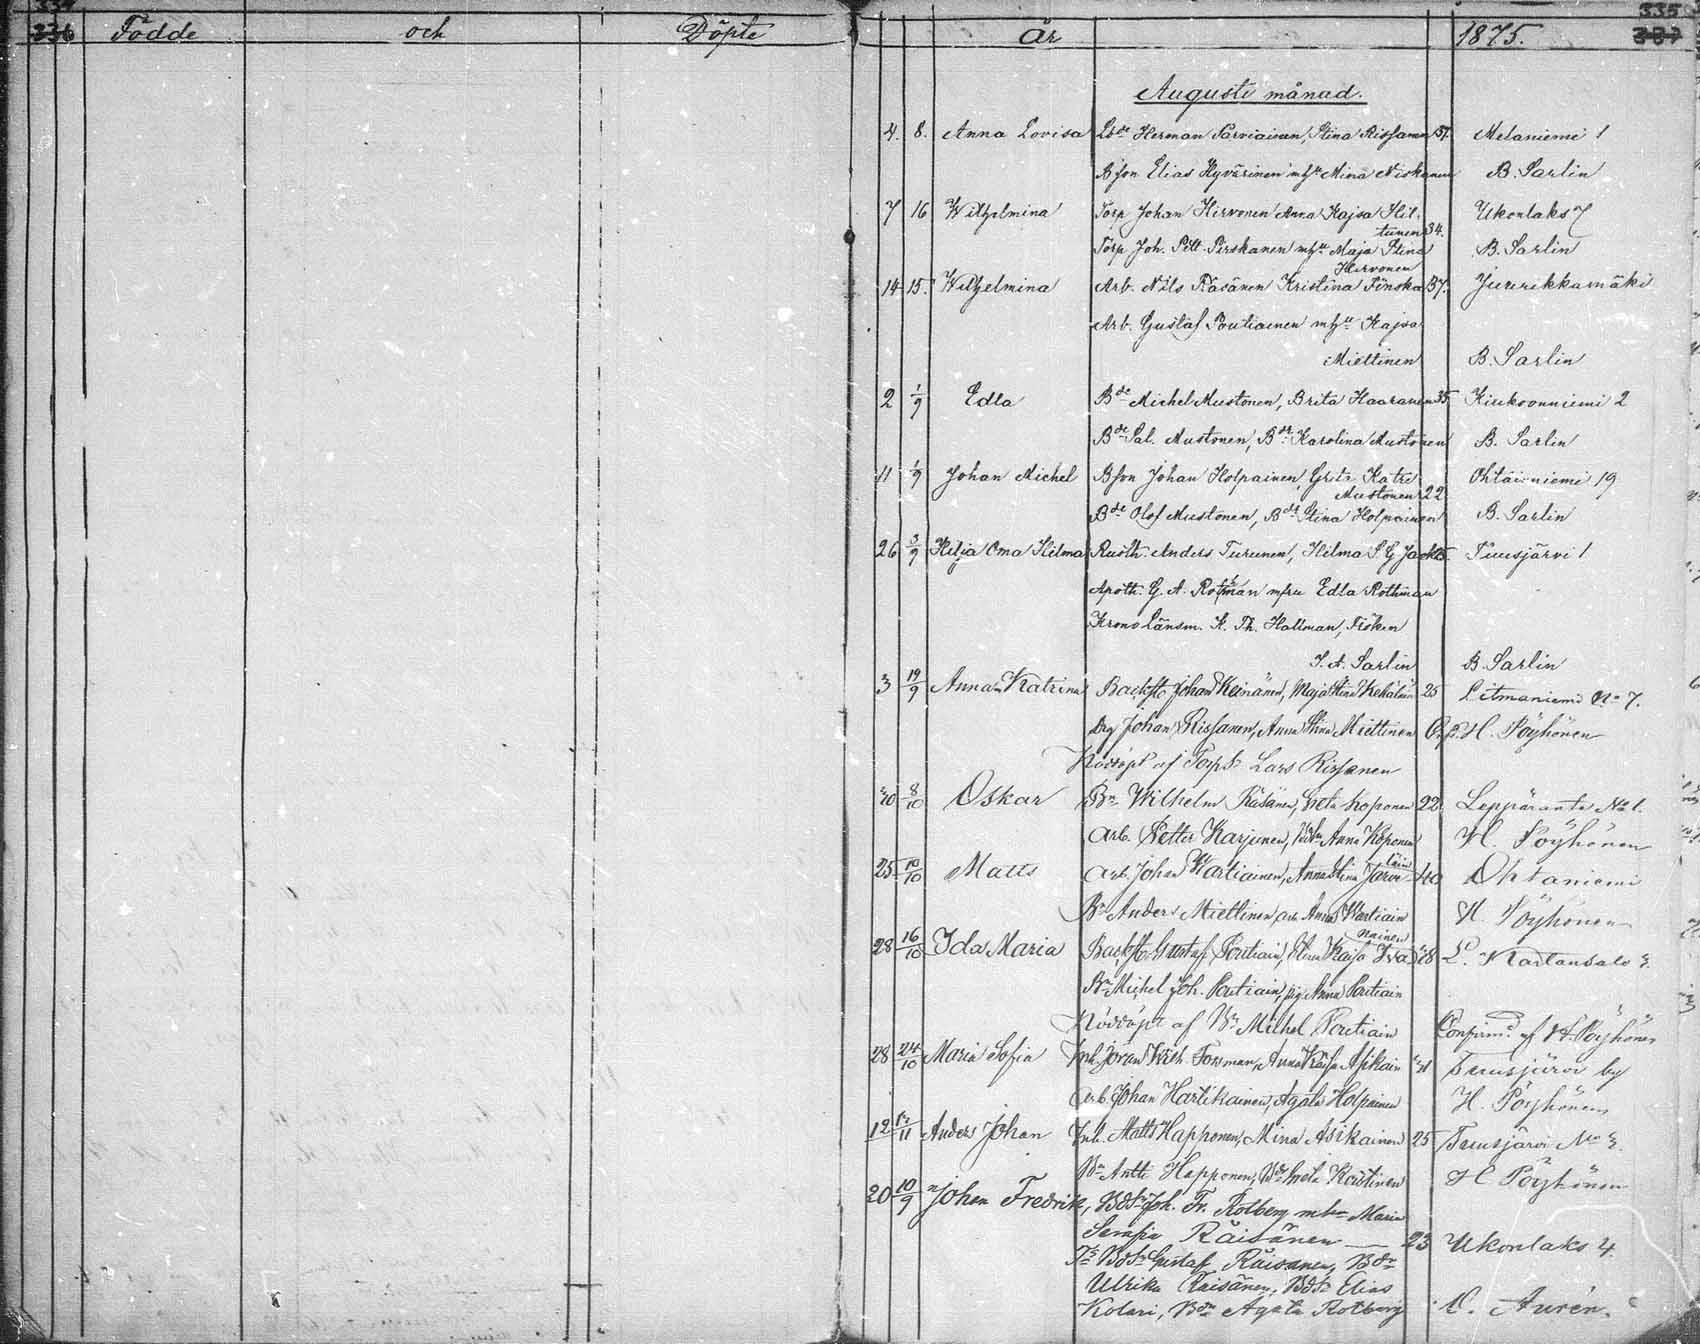 334 335
336 Födde och Döpte år 1875. 337
Augusti månad.
4. 8. Anna Lovisa Lbde Herman Parviainen, Stina Rissanen 37. Melaniemi 1
Bson Elias Hyvärinen mhu Mina Niskanen B. Sarlin
7 16 Wilhelmina Torp. Johan Hirvonen Anna Kajsa Hil- Ukonlaks 7
tunen 34.
Torp. Joh. Pett. Pirskanen mhu Maja Stina B. Sarlin
Hirvonen
14 15. Wilhelmina Arb. Nils Räsänen Kristina Finska 37. Juurikkamäki
Arb. Gustaf Poutiainen mhu Kajsa
Miettinen B. Sarlin
2 1/9 Edla Bde Michel Mustonen, Brita Haaranen 35 Kiukoonniemi 2
Bde Sal. Mustonen, Bdr Karolina Mustonen B. Sarlin
11 1/9 Johan Michel Bson Johan Holpainen, Greta Katri Ohtaniemi 19
Mustonen 22
Bde Olof Mustonen, Bdr Stina Holpainen B. Sarlin
26 3/9 Hilja Oma Hilma Rusth. Anders Turunen, Hilma S. G. Tuusjärvi 1
Apoth. G. A. Rothman mfru Edla Rothman
Krono Länsm. K. Th. Hallman, Fröken
S. A. Sarlin B. Sarlin
3 19/9 Anna Katrina Backst. Johan Keinänen, Maja Stina 25 Litmaniemi No 7.
Drg Johan Rissanen, Anna Stina Miettinen H. Pöyhönen
Nöddöpt af Torp. Lars Rissanen
20 8/10 Oskar Bn Wilhelm Räsänen, Greta Koponen 22 Leppäranta No 1.
Arb. Petter Karjunen, Anna Koponen H. Pöyhönen
25 10/10 Matts Arb. Johan Wartiainen, Anna Stina Järve- 40 Ohtaniemi
läin
Bn Anders Miettinen, Anna Wartiain H. Pöyhönen
nainen
28 16/10 Ida Maria Backst. Gustaf Poutiain, Kaisa Iva 28 L. Kaatansalo
Bn Michel Joh. Poutiain, pig. Anna Poutiain
Nöddöpt af Bn Mickel Poutiain Confirmd. af H. Pöyhönen
28 24/10 Maria Sofia Inh. Johan Wilh. Forsman, Anna Kaisa Asikain Tuusjärvi by
Arb. Johan Hartikainen, Agata Holpainen H. Pöyhönen
12 Anders Johan Inh. Matts Happonen, Mina Asikainen 25 Tuusjärvi No
Bn Antti Happonen, H Pöyhönen
20 10/9 Johan Fredrik, Bds Joh. Fr. Rotberg mhu Maria
Serafia Räisänen 23 Ukonlaks 4.
Bds Gustaf Räisänen, Bdr
Ulrika Räisänen, Bds Elias
Kolari, Bdr Agata Rotberg Aurén.